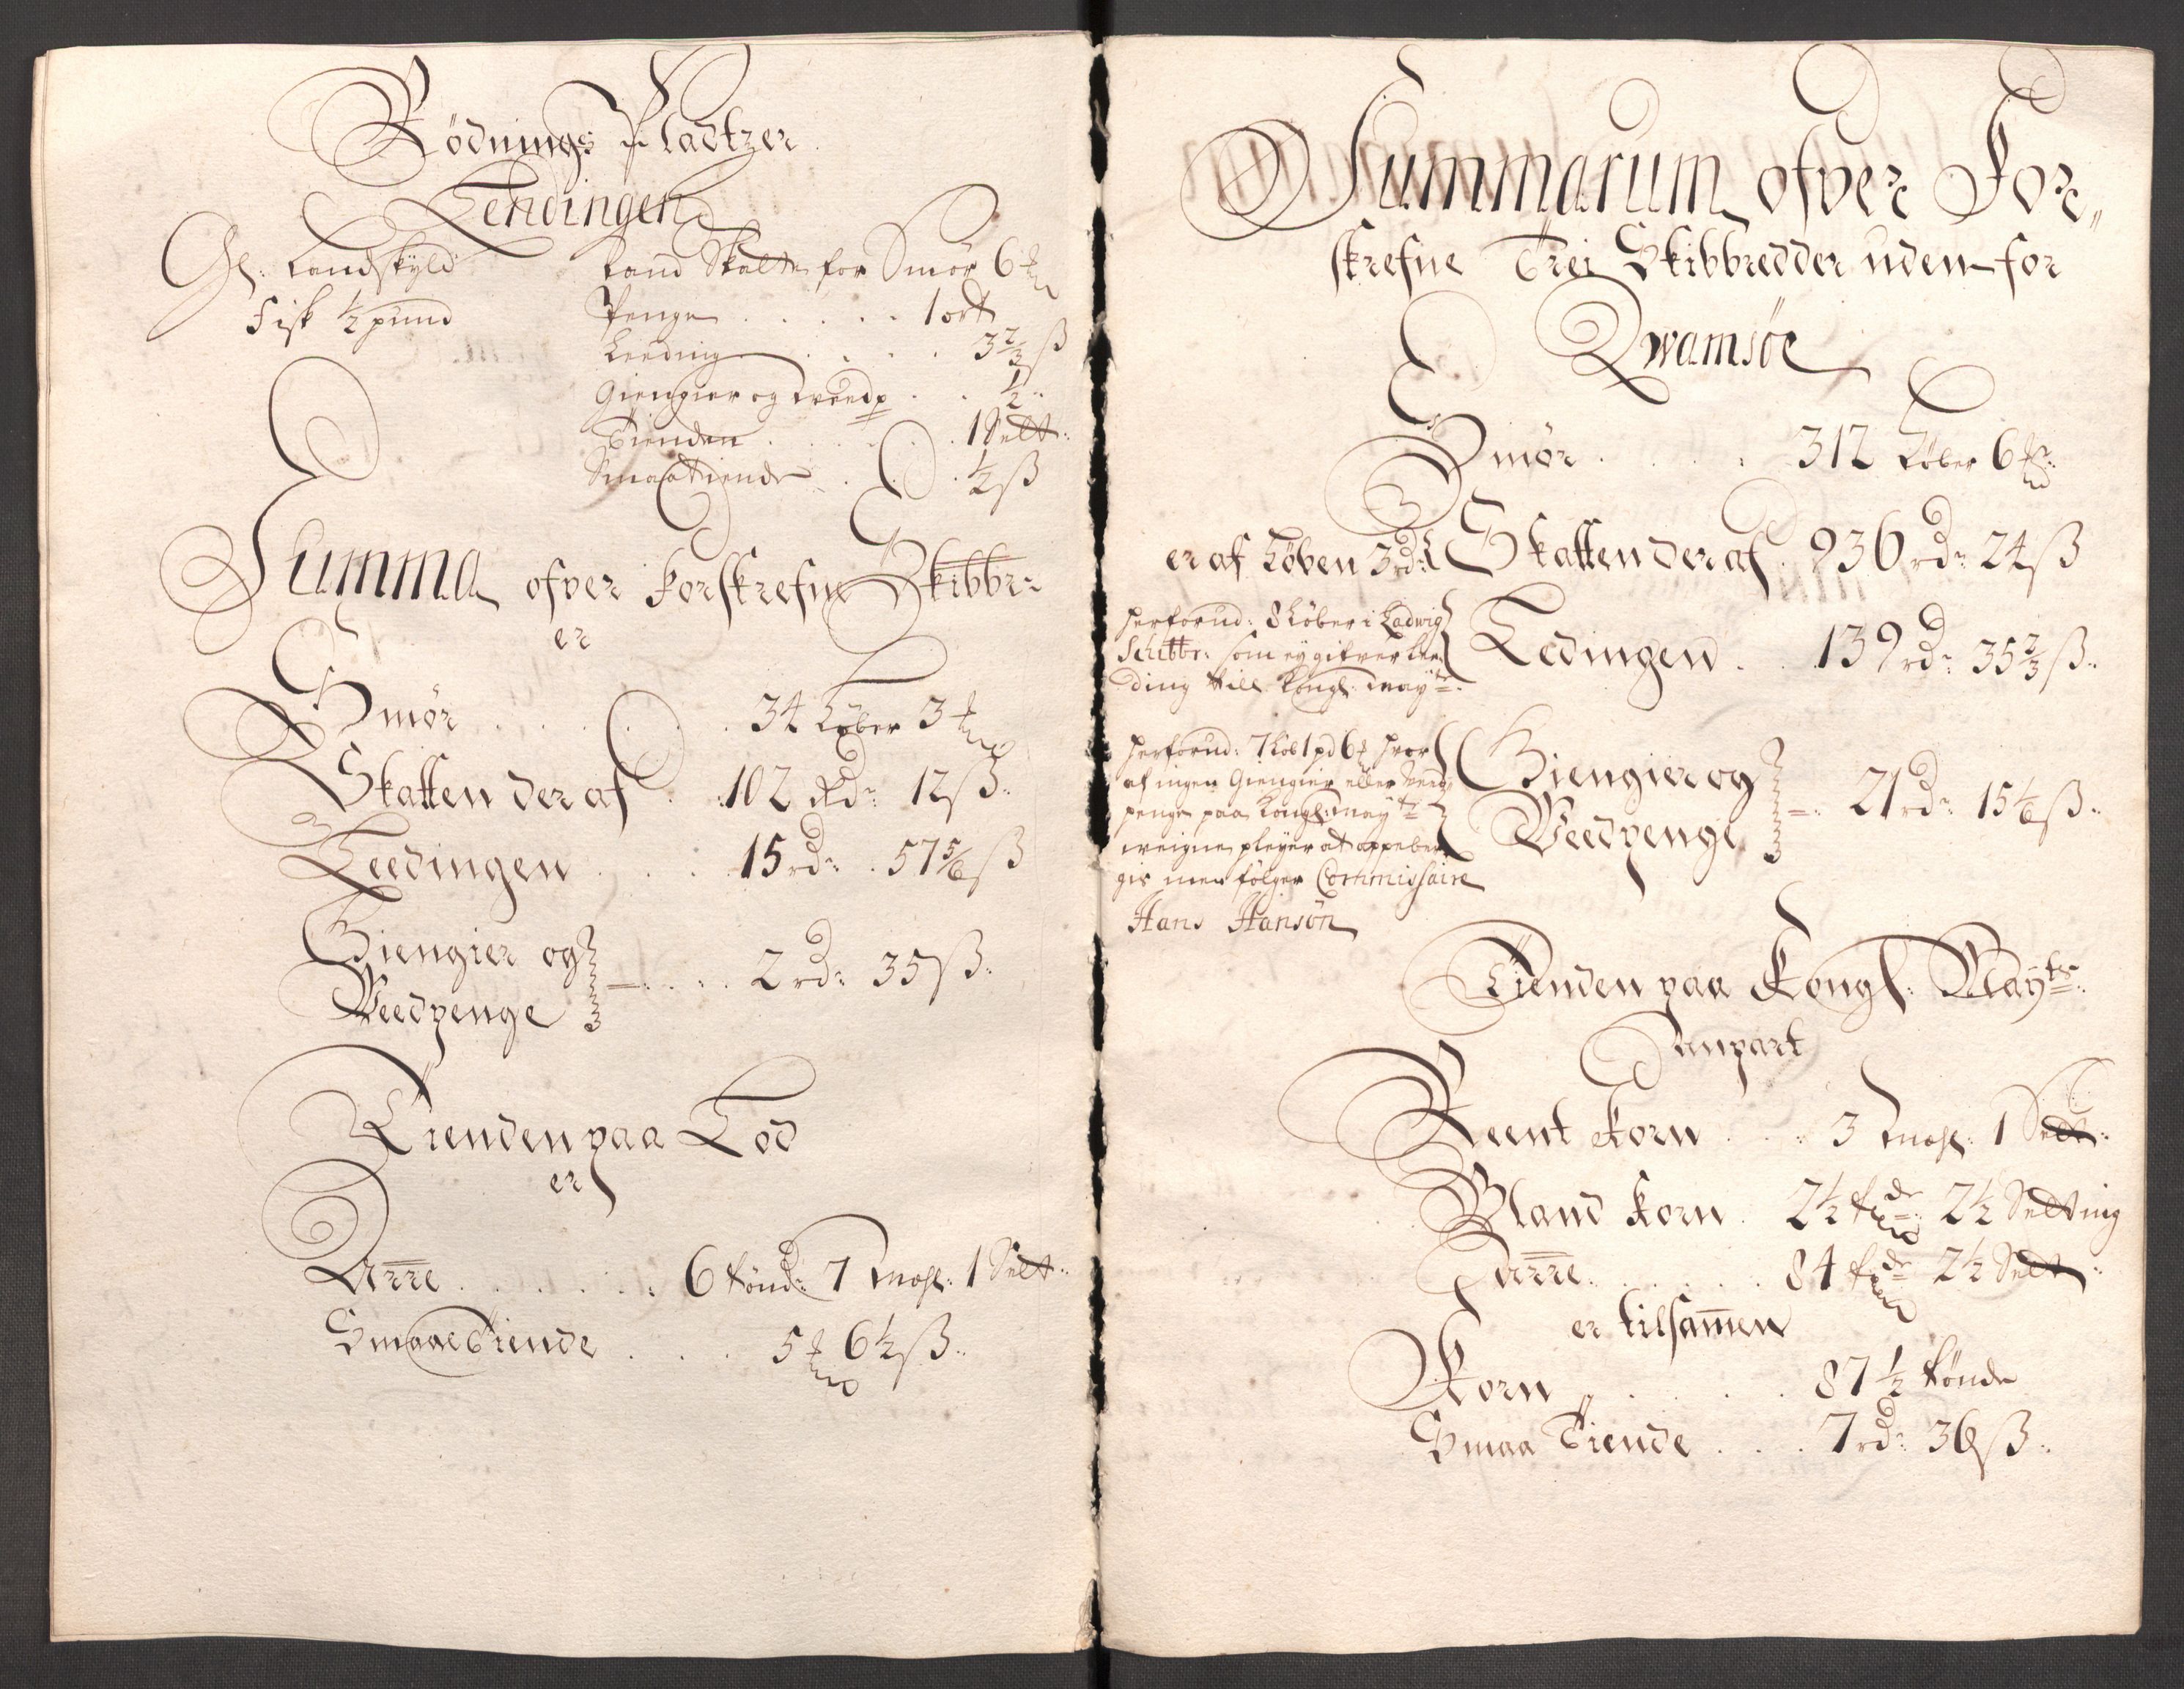 Rödnings Pladtzer
Lendingen
Gl: Landskyld
Fisk ½ pund
Land Skatt for Smör 6
Penge . . . . . 1 ort
Leeding . . . . 3⅔ ß
Giengier og weedp . . ½ ..
Tienden . . . . . 1 Selt:
Smaatiende . . . ½ ß
Summa ofver Forskrefne Skibbr:
er
Smör . . . . . 34 Løber 3
Skatten der af . . 102 Rd: 12 ß.
Leedingen . . . . 15 rd: 57⅚ ß
Giengier og
Weedpenge . . . . 2 rd: 35 ß:
Tienden paa Lod
er
Arre . . . . . . 6 tönd: 7 mæl: 1 Selt:
SmaaeTiende . . . . 5 6½ ß..
Summarum ofver For„
skrefne Trei Skibbredder uden for
Qwamsöe
Smör . . . . . 312 Løber 6
er af Løben 3 rd: Skatten der af . 936 rd: 24 ß
herforud: 8 Løber i Ladwig
Schibbr: som ey gifver Lee
ding till Kongl: Maytt:
Ledingen . . 139 rd: 35⅔ ß..
herforud: 7 Løb 1 pd 6 hvor
af ingen Giengier eller Weed
penge paa Kongl: Mayts
weigne pleyer at oppeber
gis men følger Commissaire
Hans Hansön
Giengier og
Weedpenge . 21 rd: 15⅙ ß..
Tienden paa Kongl: Mayts:
Anpart
Reent Korn . . . 3 mæl: 1 Selt:
Bland Korn . 2½ 2½ Selting
Arre . . . . . . 84 2½ Selt:
er tilsamen
Korn . . . . . 87½ tönde
Smaa Tiende . . . 7 rd: 36 ß..